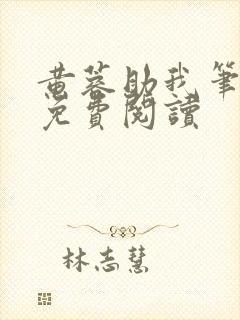 黄蓉助我筆
免費閱讀
林志慧